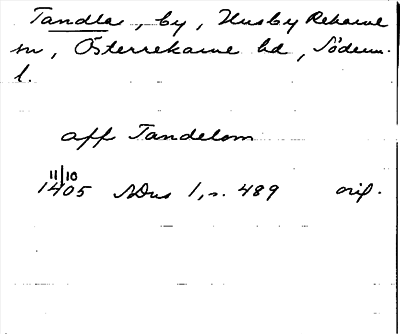 Tandla, by, Husby Rekarne
sn, Österrekarne hd, Söderm.
l.
aff Tandelom
11/10
1405 SDns 1, s. 489 orig.